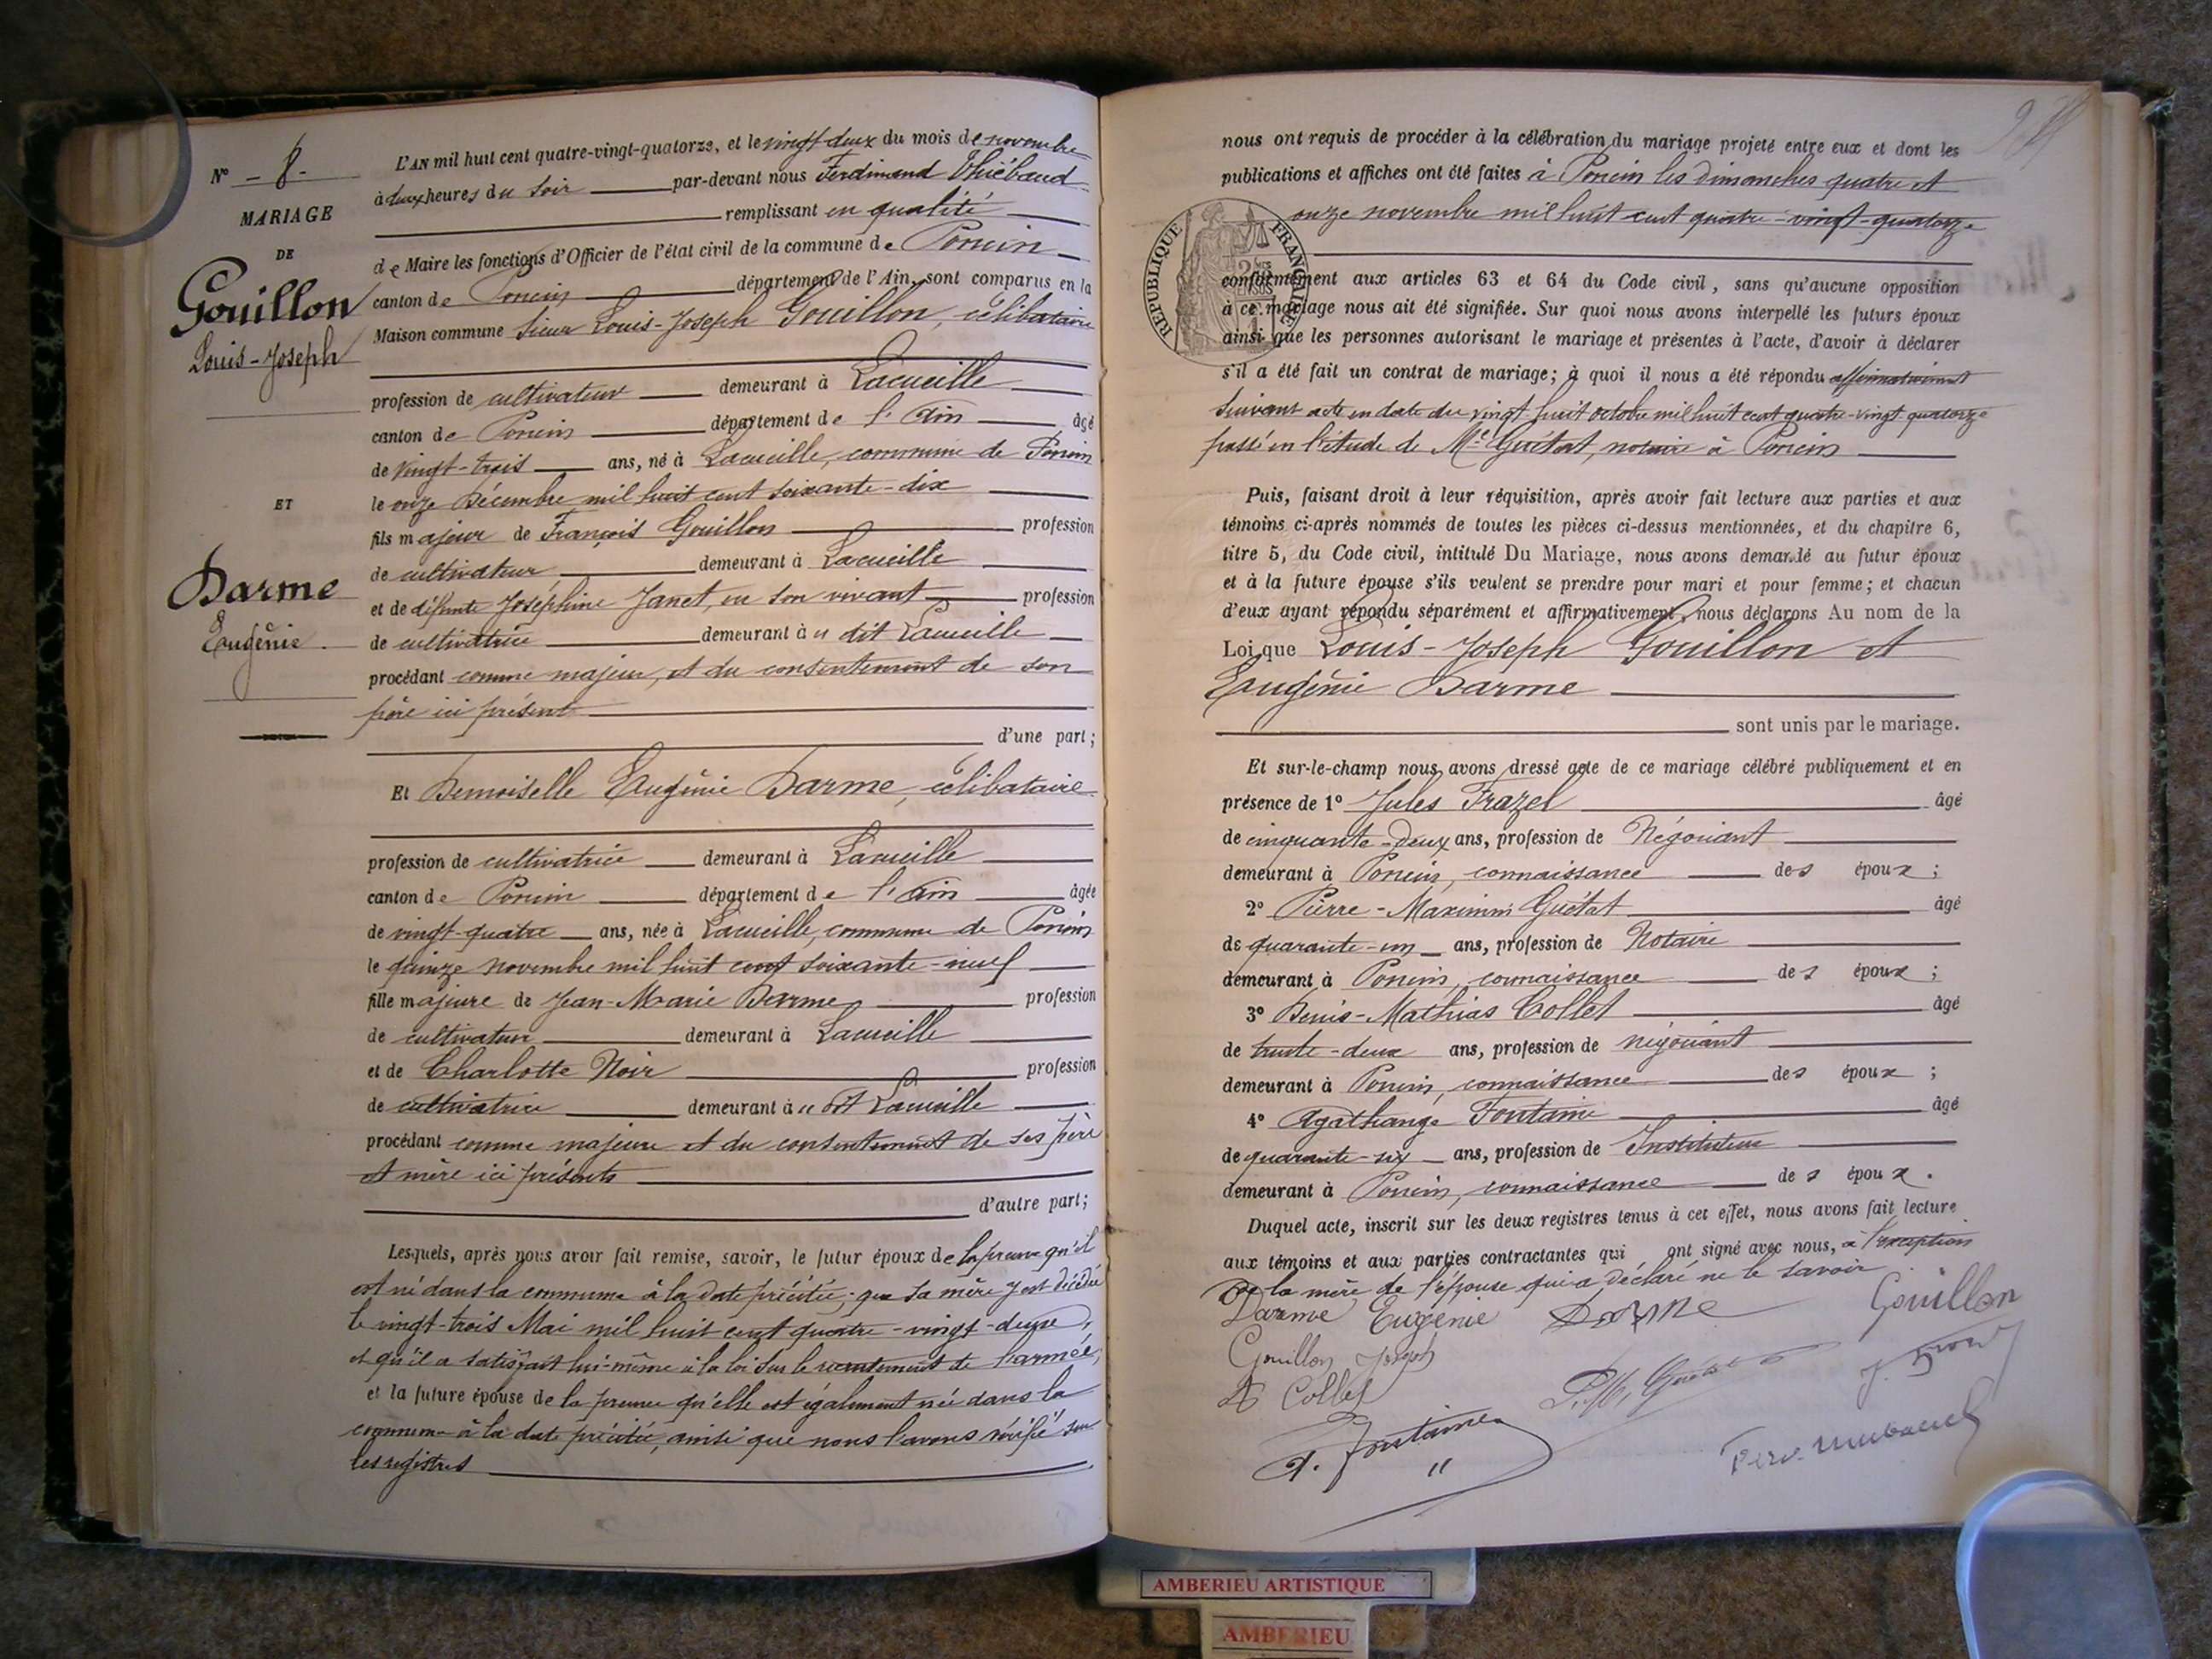 N° - 8 -
MARIAGE
DE
Gouillon
Louis-Joseph
ET
Darme
Eugénie
L'AN mil huit cent quatre-vingt-quatorze, et le vingt-deux du mois de novembre
à deux heures du soir par-devant nous Ferdinand Thiébaud
remplissant en qualité
de Maire les fonctions d'Officier de l'état civil de la commune de Poncin
canton de Poncin département de l'Ain, sont comparus en la
Maison commune Sieur Louis-Joseph Gouillon, célibataire
profession de cultivateur demeurant à Lacueille
canton de Poncin département de l'Ain âgé
de vingt-trois ans, né à Lacueille, commune de Poncin
le onze Décembre mil huit cent soixante-dix
fils majeur de François Gouillon profession
de cultivateur demeurant à Lacueille
et de défunte Joséphine Janet, en son vivant profession
de cultivatrice demeurant à u dit Lacueille
procédant comme majeur, et du consentement de son
père ici présent
d'une part;
Et Demoiselle Eugénie Darme, célibataire
profession de cultivatrice demeurant à Lacueille
canton de Poncin département de l'Ain âgée
de vingt-quatre ans, née à Lacueille, commune de Poncin
le quinze novembre mil huit cent soixante-neuf
fille majeure de Jean-Marie Darme profession
de cultivateur demeurant à Lacueille
et de Charlotte Noir profession
de cultivatrice demeurant à u dit Lacueille
procédant comme majeure et du consentement de ses père
et mère ici présents
d'autre part;
Lesquels, après nous avoir fait remise, savoir, le futur époux de la preuve qu'il
est né dans la commune à la date précitée; que sa mère y est décédée
le vingt-trois Mai mil huit cent quatre-vingt-deux,
et qu'il a satisfait lui-même à la loi sur le recrutement de l'armée,
et la future épouse de la preuve qu'elle est également née dans la
commune à la date précitée, ainsi que nous l'avons vérifié sur
les registres
nous ont requis de procéder à la célébration du mariage projeté entre eux et dont les
publications et affiches ont été faites à Poncin les dimanches quatre et
onze novembre mil huit cent quatre-vingt-quatorze
RÉPUBLIQUE FRANÇAISE
conformément aux articles 63 et 64 du Code civil, sans qu'aucune opposition
à ce mariage nous ait été signifiée. Sur quoi nous avons interpellé les futurs époux
ainsi que les personnes autorisant le mariage et présentes à l'acte, d'avoir à déclarer
s'il a été fait un contrat de mariage; à quoi il nous a été répondu affirmativement
suivant acte en date du vingt huit octobre mil huit cent quatre-vingt-quatorze
passé en l'étude de Me Guétat, notaire à Poncin
Puis, faisant droit à leur réquisition, après avoir fait lecture aux parties et aux
témoins ci-après nommés de toutes les pièces ci-dessus mentionnées, et du chapitre 6,
titre 5, du Code civil, intitulé Du Mariage, nous avons demandé au futur époux
et à la future épouse s'ils veulent se prendre pour mari et pour femme; et chacun
d'eux ayant répondu séparément et affirmativement, nous déclarons Au nom de la
Loi que Louis-Joseph Gouillon et
Eugénie Darme
sont unis par le mariage.
Et sur-le-champ nous avons dressé acte de ce mariage célébré publiquement et en
présence de 1° Jules Frazel âgé
de cinquante-deux ans, profession de Négociant
demeurant à Poncin, connaissance des époux;
2° Pierre-Maximin Guétat âgé
de quarante-un ans, profession de Notaire
demeurant à Poncin, connaissance des époux;
3° Denis-Mathias Collet âgé
de trente-deux ans, profession de négociant
demeurant à Poncin, connaissance des époux;
4° Agathange Fontaine âgé
de quarante-six ans, profession de Instituteur
demeurant à Poncin, connaissance des époux.
Duquel acte, inscrit sur les deux registres tenus à cet effet, nous avons fait lecture
aux témoins et aux parties contractantes qui ont signé avec nous, à l'exception
de la mère de l'épouse qui a déclaré ne le savoir
Darme Eugenie Darme Gouillon
Gouillon Joseph
Collet
A. Fontaine
AMBERIEU ARTISTIQUE
AMBERIEU